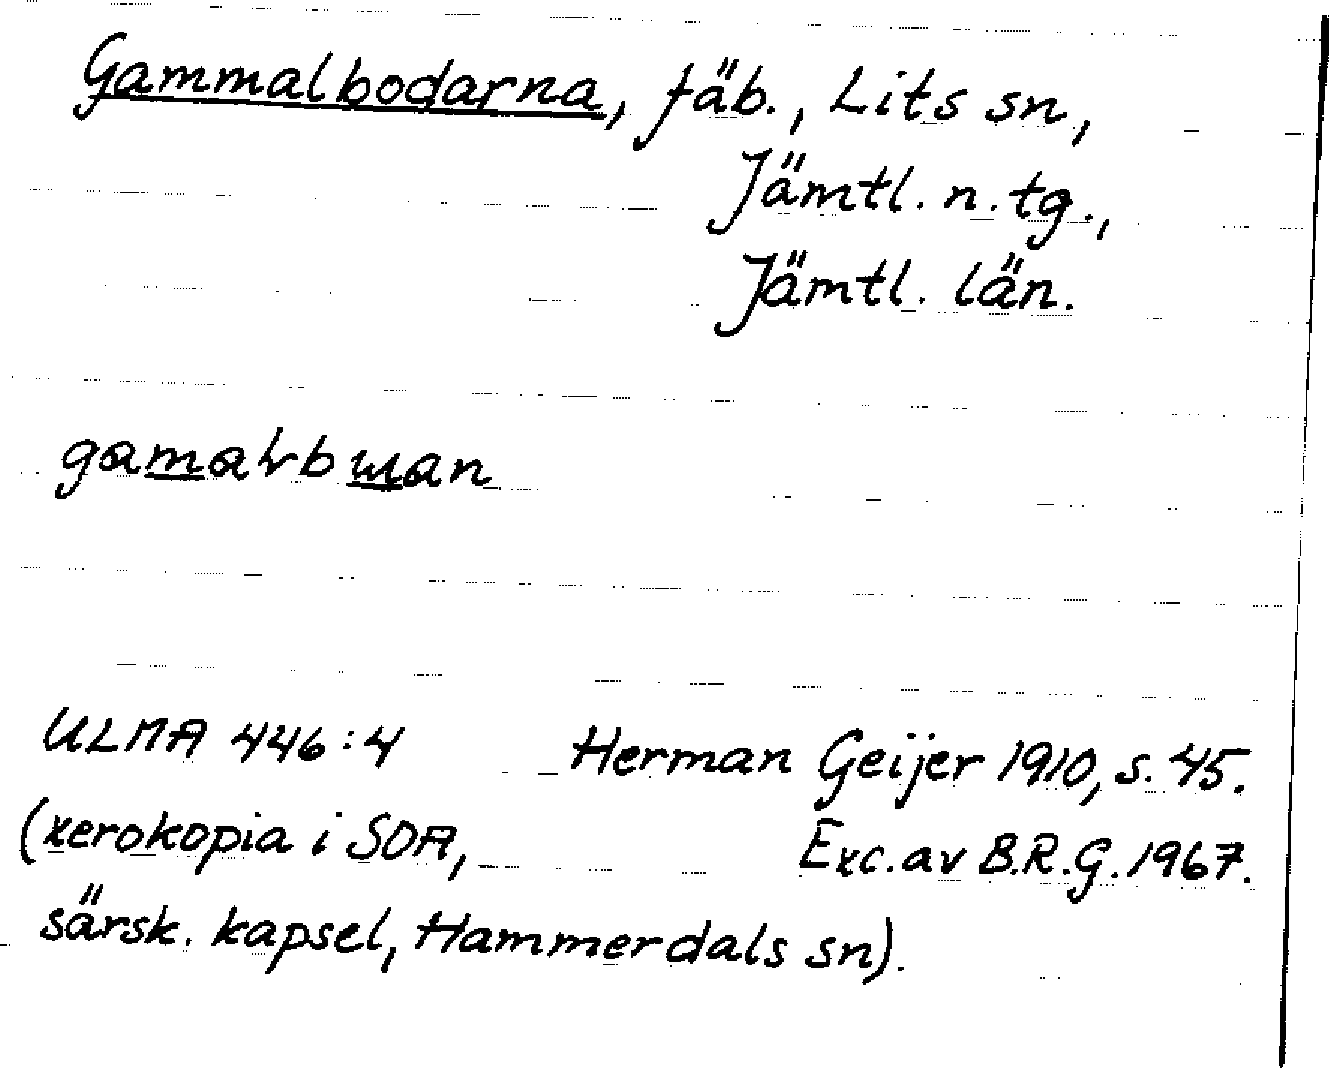 Gammalbodarna, fäb., Lits sn,
Jämtl. n. tg.,
Jämtl. län.
ULMA 446:4 Herman Geijer 1910, s. 45.
(xerokopia i SOA, Exc. av B.R.G. 1967.
särsk. kapsel, Hammerdals sn).